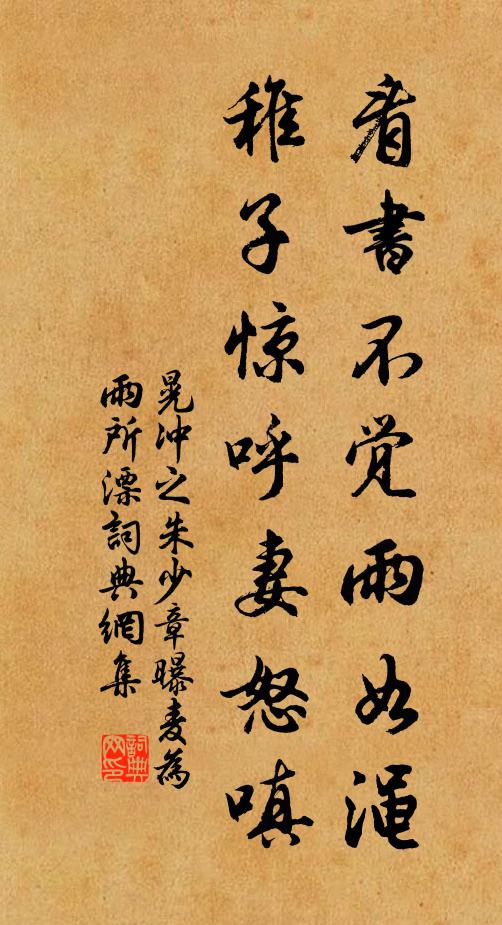 看書不觉雨如渑
稚子惊呼妻怒嗔
晃冲之朱少章曝麦為
雨所漂詞典網集
詞典
网印